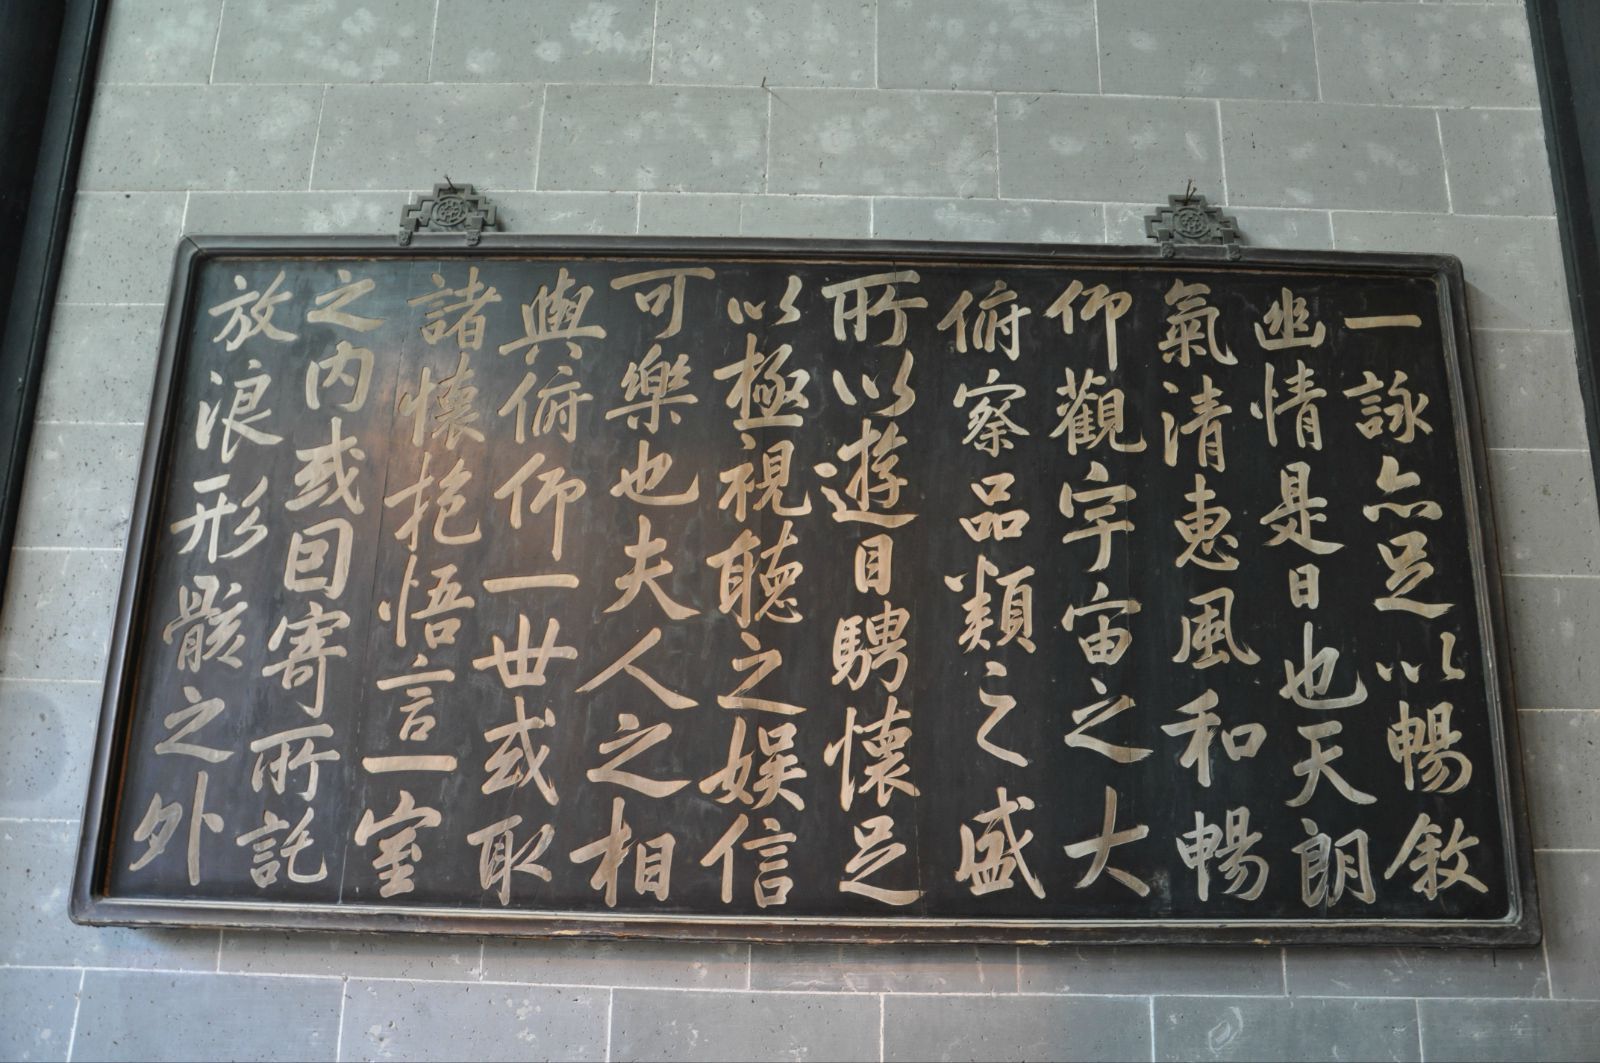 一詠亦足以暢敘
幽情是日也天朗
氣清惠風和暢
仰觀宇宙之大
俯察品類之盛
所以遊目騁懷足
以極視聽之娛信
可樂也夫人之相
與俯仰一世或取
諸懷抱悟言一室
之内或因寄所託
放浪形骸之外